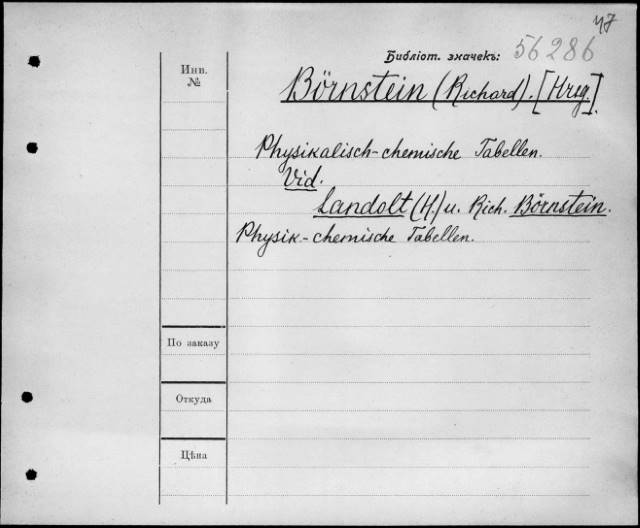 47
Библіот. значекъ: 56286
Инв.
№
Börnstein (Richard). [Hrsg.]
Physikalisch-chemische Tabellen.
Vid.
Landolt (H.) u. Rich. Börnstein.
Physik-chemische Tabellen.
По заказу
Откуда
Цѣна